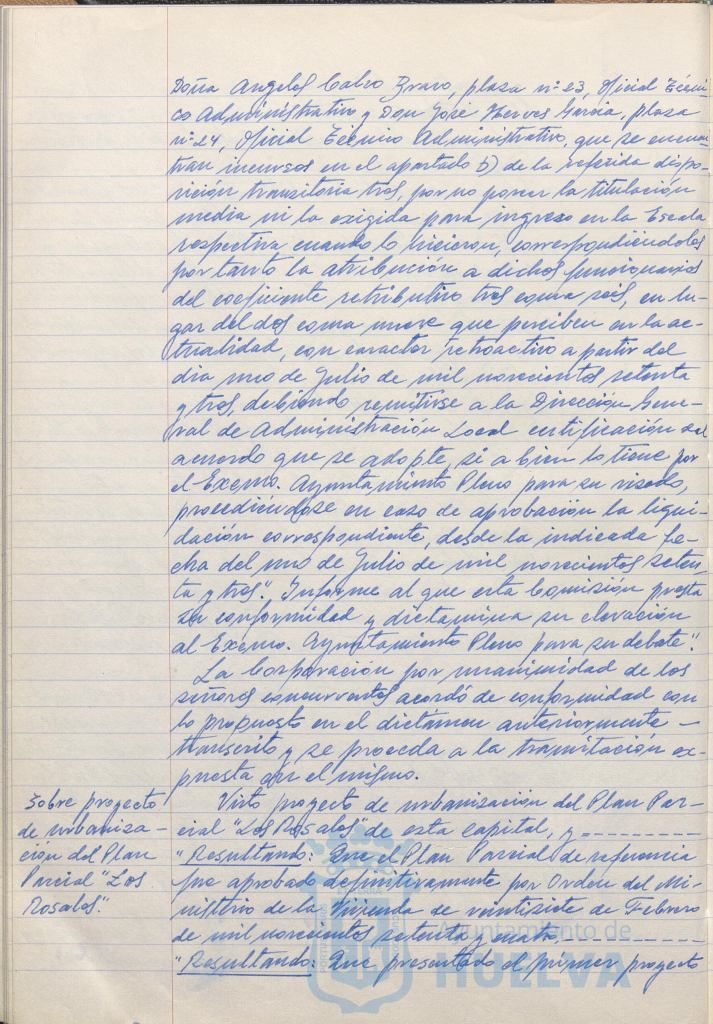 Doña Angeles Calvo Bravo, plaza nº 23, Oficial Técni-
co Administrativo y Don José Nerves García, plaza
nº 24, Oficial Técnico Administrativo, que se encuen-
tran incursos en el apartado b) de la referida dispo-
sición transitoria tres, por no poseer la titulación
media ni la exigida para ingreso en la Escala
respectiva cuando lo hicieron, correspondiéndoles
por tanto la atribución a dichos funcionarios
del coeficiente retributivo tres coma seis, en lu-
gar del dos coma nueve que perciben en la ac-
tualidad, con caracter retroactivo a partir del
dia uno de Julio de mil novecientos setenta
y tres, debiendo remitirse a la Dirección Gene-
ral de Administración Local certificación del
acuerdo que se adopte, si a bien lo tiene por
el Excmo. Ayuntamiento Pleno para su visado,
procediéndose en caso de aprobación la liqui-
dación correspondiente, desde la indicada fe-
cha del uno de Julio de mil novecientos seten-
ta y tres". Informe al que esta Comisión presta
su conformidad y dictamina su elevación
al Excmo. Ayuntamiento Pleno para su debate".
La Corporación por unanimidad de los
señores concurrentes acordó de conformidad con
lo propuesto en el dictámen anteriormente -
transcrito y se proceda a la tramitación ex-
puesta en el mismo.
Sobre proyecto
de urbaniza-
ción del Plan
Parcial "Los
Rosales".
Visto proyecto de urbanización del Plan Par-
cial "Los Rosales" de esta capital, y = - - - - - - - -
"Resultando: Que el Plan Parcial de referencia
fue aprobado definitivamente por Orden del Mi-
nisterio de la Vivienda de veintisiete de Febrero
de mil novecientos setenta y cuatro. - - - - - - - - -
"Resultando: Que presentado el primer proyecto
Ayuntamiento de
HUELVA